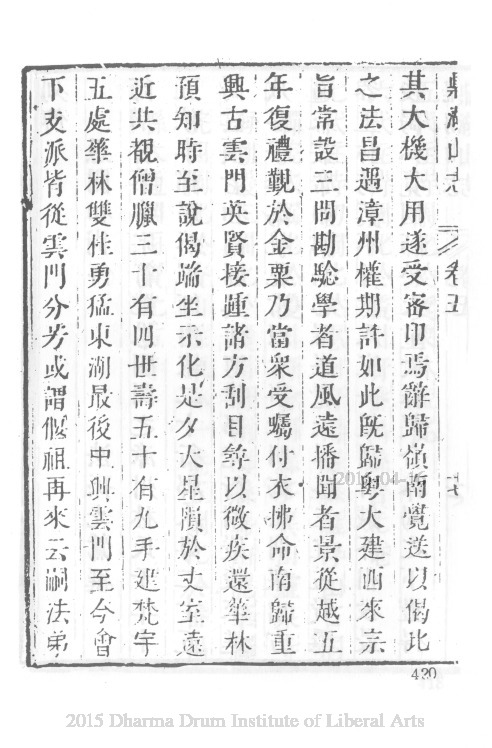 鼎湖山志 卷五
其大機大用遂受審印焉辭歸嶺南覺送以偈比
之法昌遇漳州權期許如此既歸粵大建西來宗
旨常設三問勘驗學者道風遠播聞者景從越五
年復禮覲於金粟乃當衆受囑付衣拂命南歸重
興古雲門英賢接踵諸方刮目尋以微疾還華林
預知時至說偈端坐示化是夕大星隕於丈室遠
近共覩僧臘三十有四世壽五十有九手建梵宇
五處華林雙桂勇猛東湖最後中興雲門至今會
下支派皆從雲門分芳或謂偃祖再來云嗣法弟
420
2015 Dharma Drum Institute of Liberal Arts